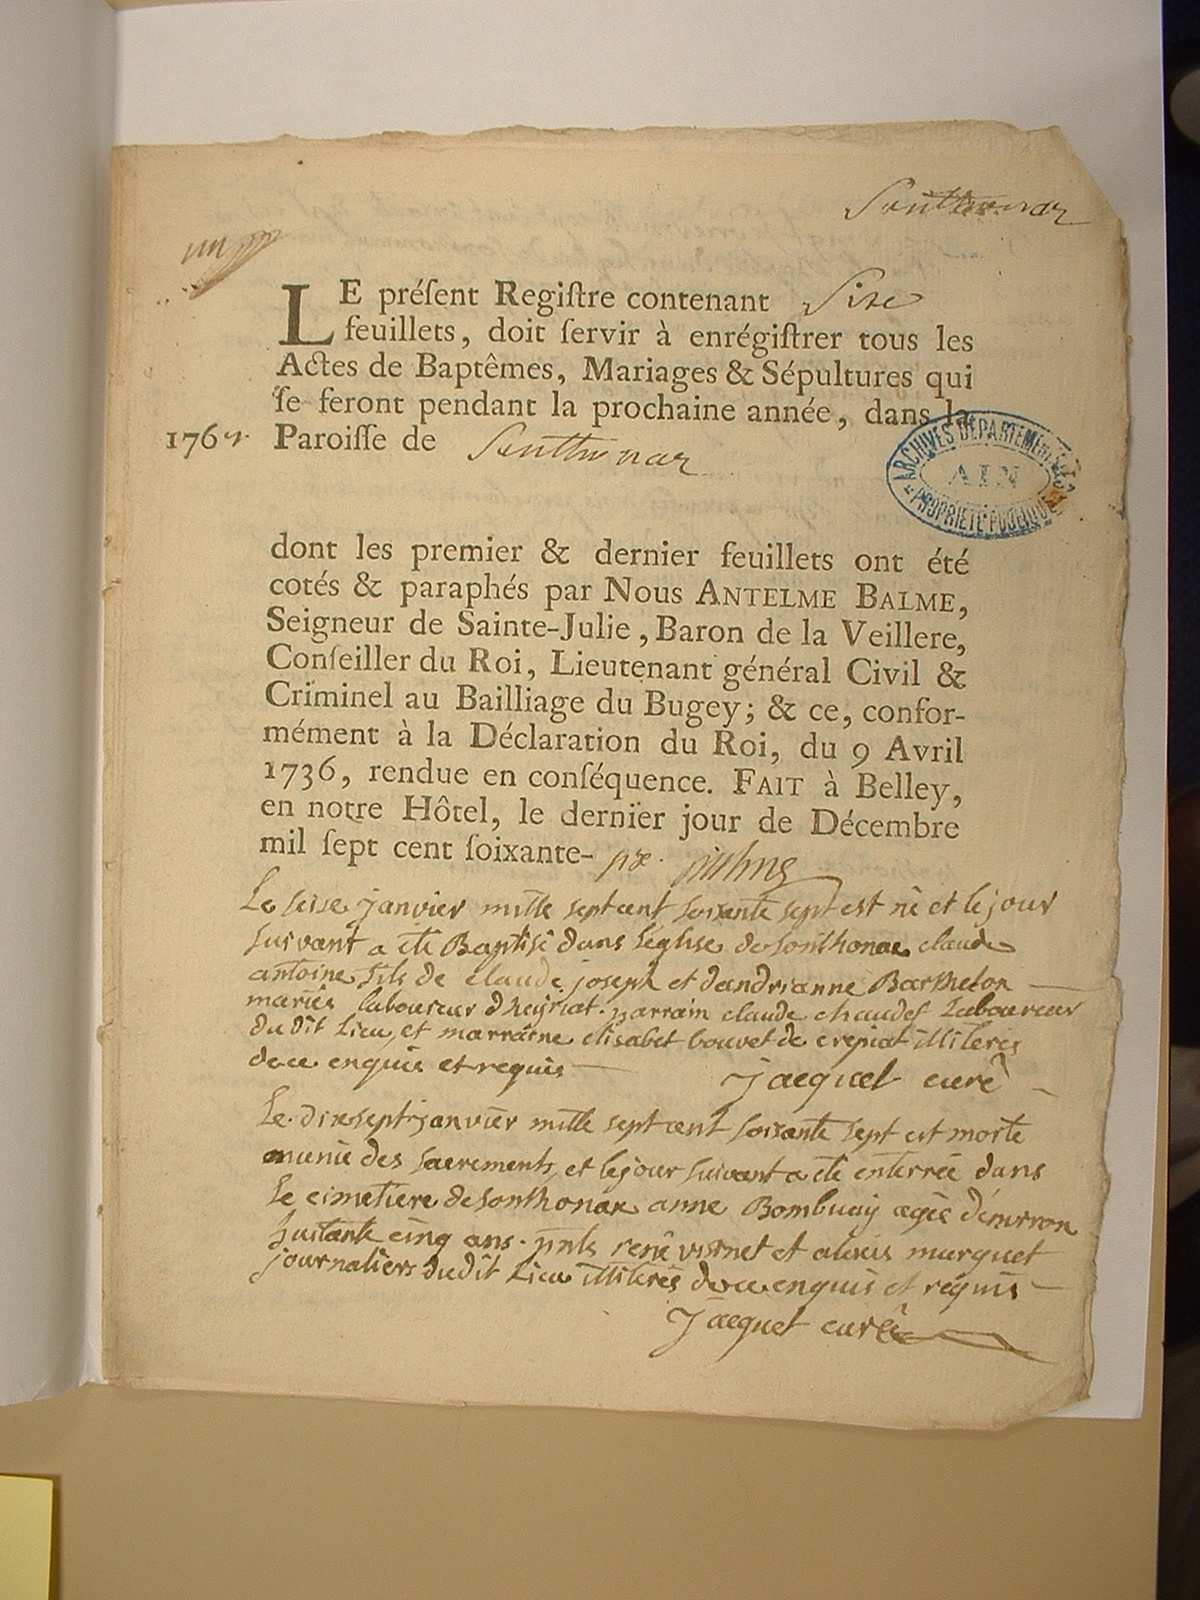 Sonthonax
un
LE préſent Regiſtre contenant Six
feuillets, doit ſervir à enrégiſtrer tous les
Actes de Baptêmes, Mariages & Sépultures qui
ſe feront pendant la prochaine année, dans la
1767. Paroiſſe de Sonthonax
ARCHIVES DEPARTEMENTALES
AIN
PROPRIETE PUBLIQUE
dont les premier & dernier feuillets ont été
cotés & paraphés par Nous ANTELME BALME,
Seigneur de Sainte-Julie, Baron de la Veillere,
Conſeiller du Roi, Lieutenant général Civil &
Criminel au Bailliage du Bugey; & ce, confor-
mément à la Déclaration du Roi, du 9 Avril
1736, rendue en conſéquence. FAIT à Belley,
en notre Hôtel, le dernier jour de Décembre
mil ſept cent ſoixante-
Le seise janvier mille sept cent soixante sept est nè et le jour
suivant a èté Baptisé dans l'église de sonthonax claude
antoine fils de claude joseph et dandrianne Barthelon
mariés laboureur d'heyriat. parrain claude chaudet Laboureur
du dit Lieu, et marraine elisabet bouvet de crepiat illiterés
de ce enquis et requis Jacquet curé
Le dixsept janvier mille sept cent soixante sept est morte
munie des sacrements, et le jour suivant a èté enterrée dans
Le cimetiere de sonthonax anne Bombuay agée d'environ
huitante cinq ans. pnts renè visnet et alexis murguet
journaliers dudit Lieu illiterés de ce enquis et requis
Jacquet curé